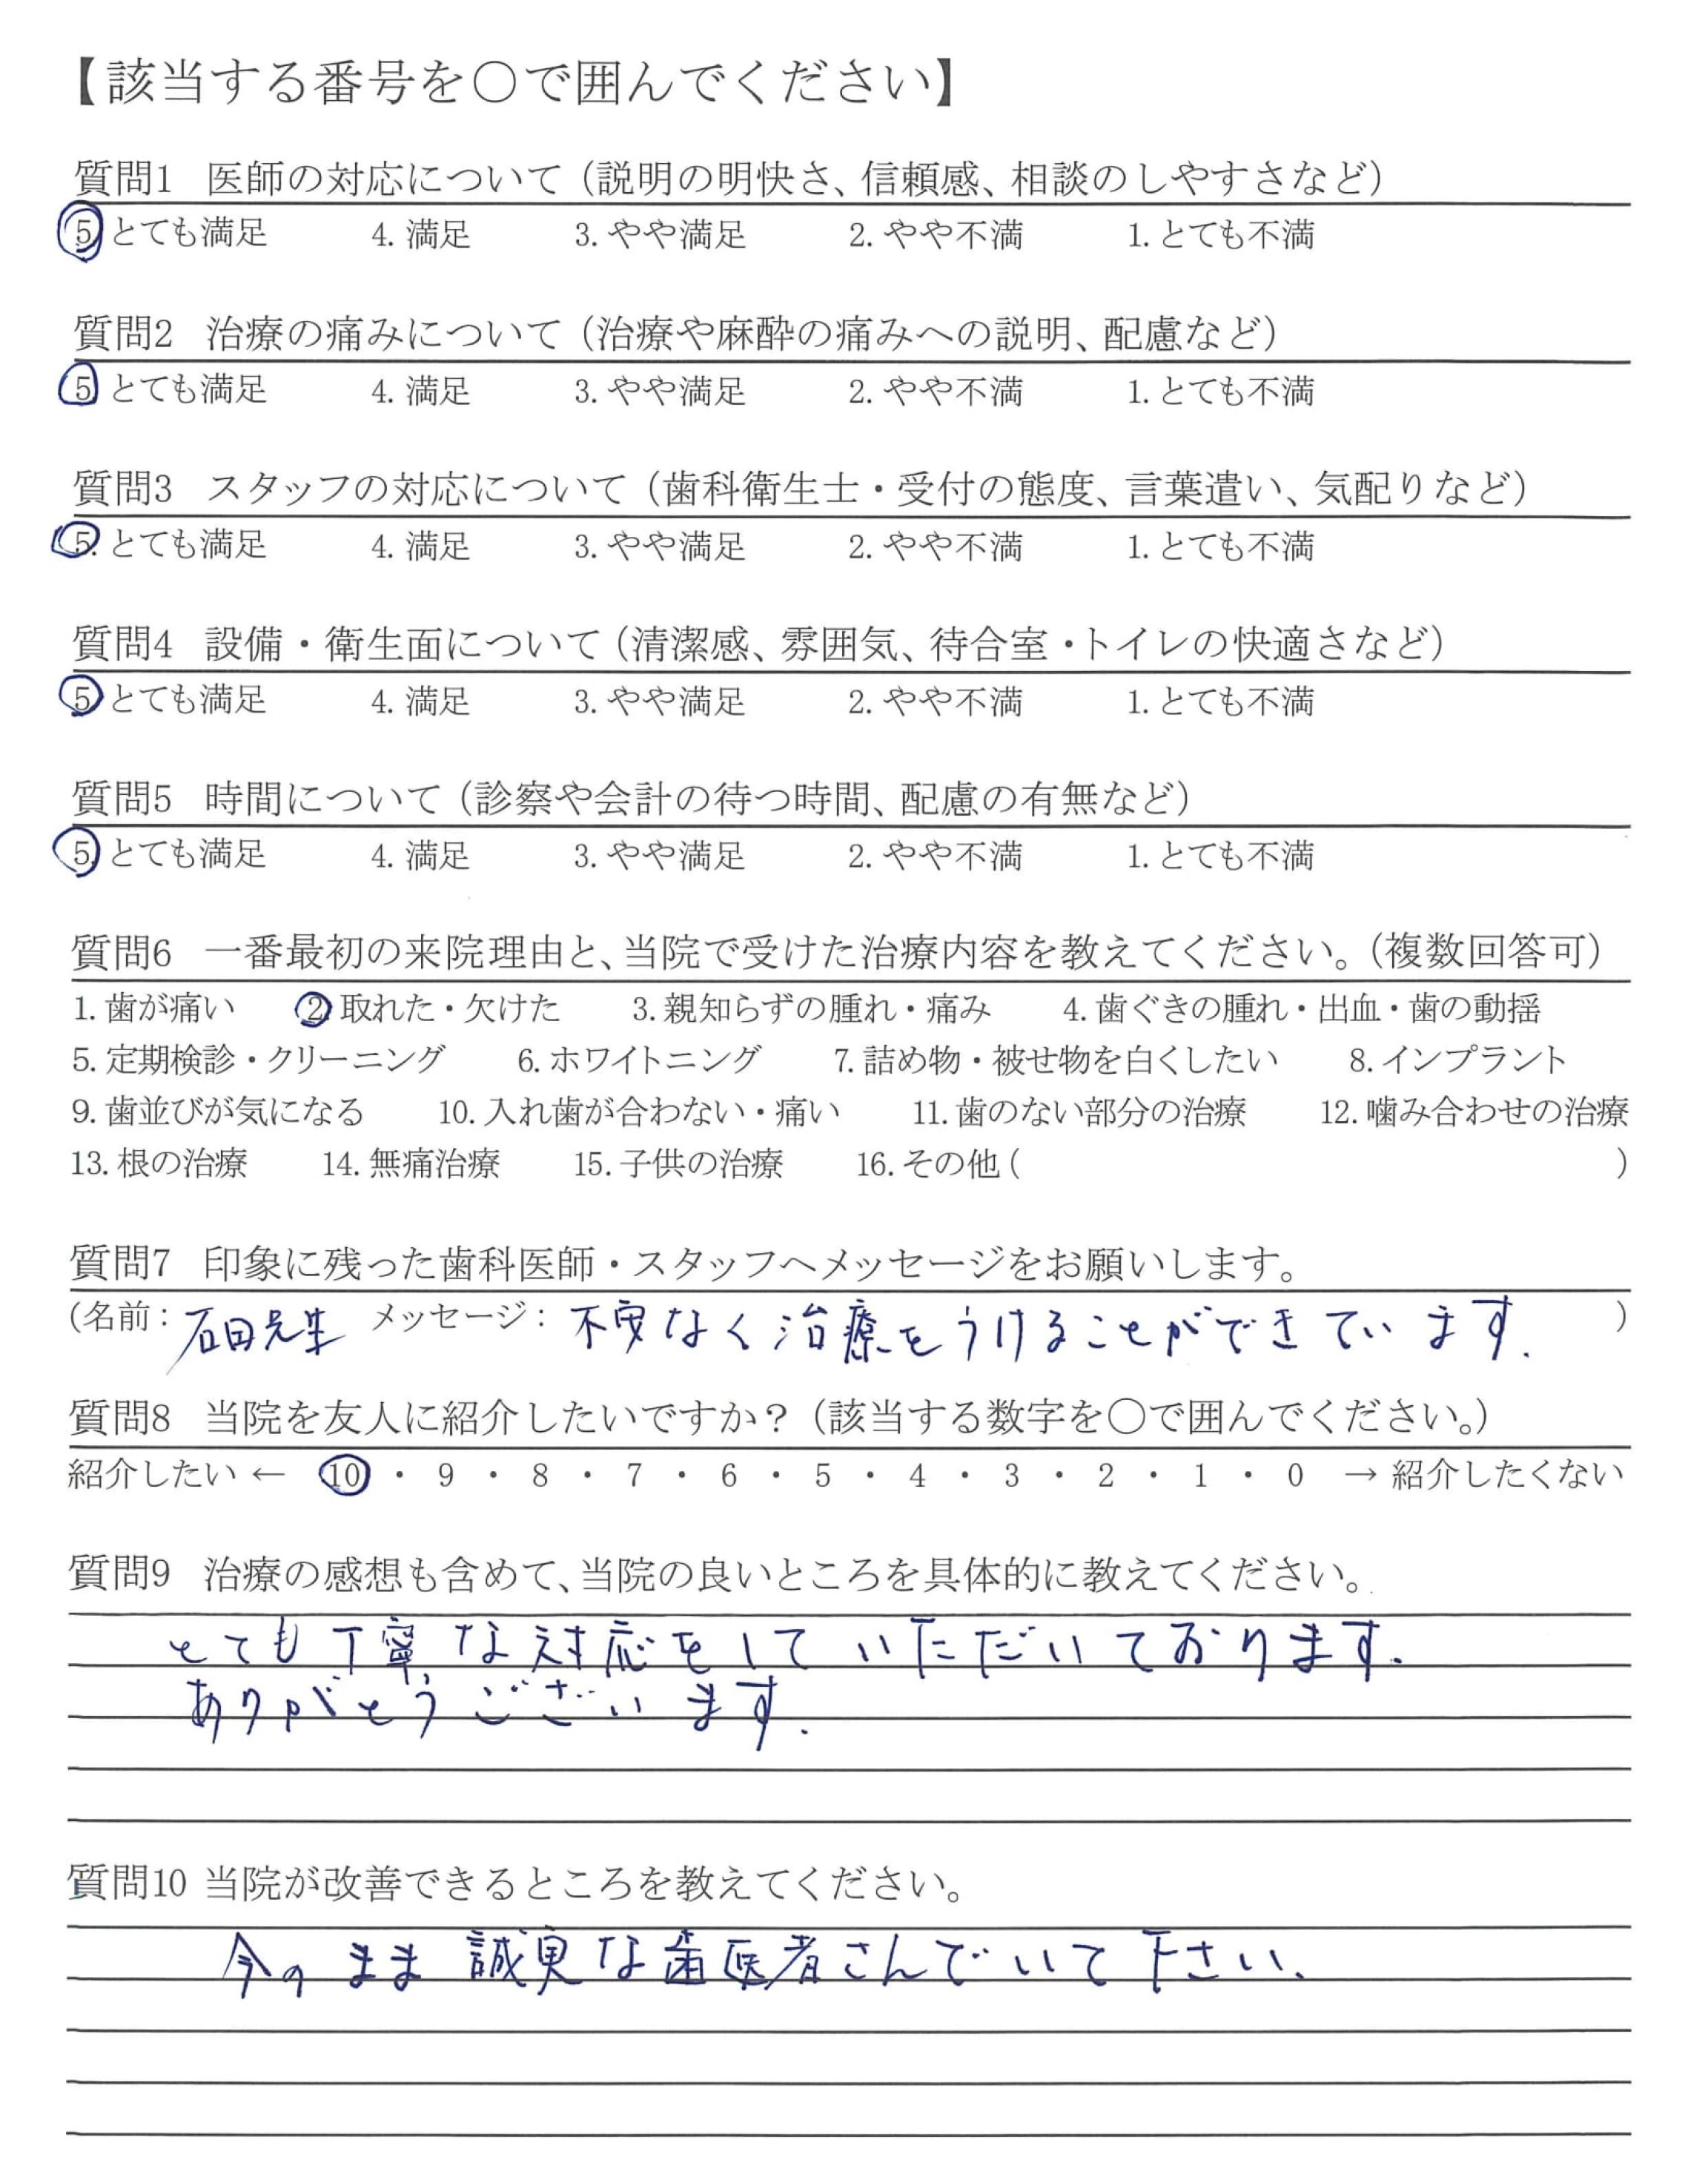 【該当する番号を〇で囲んでください】
質問1 医師の対応について（説明の明快さ、信頼感、相談のしやすさなど）
5. とても満足 4. 満足 3. やや満足 2. やや不満 1. とても不満
質問2 治療の痛みについて（治療や麻酔の痛みへの説明、配慮など）
5. とても満足 4. 満足 3. やや満足 2. やや不満 1. とても不満
質問3 スタッフの対応について（歯科衛生士・受付の態度、言葉遣い、気配りなど）
5. とても満足 4. 満足 3. やや満足 2. やや不満 1. とても不満
質問4 設備・衛生面について（清潔感、雰囲気、待合室・トイレの快適さなど）
5. とても満足 4. 満足 3. やや満足 2. やや不満 1. とても不満
質問5 時間について（診察や会計の待つ時間、配慮の有無など）
5. とても満足 4. 満足 3. やや満足 2. やや不満 1. とても不満
質問6 一番最初の来院理由と、当院で受けた治療内容を教えてください。（複数回答可）
1. 歯が痛い 2. 取れた・欠けた 3. 親知らずの腫れ・痛み 4. 歯ぐきの腫れ・出血・歯の動揺
5. 定期検診・クリーニング 6. ホワイトニング 7. 詰め物・被せ物を白くしたい 8. インプラント
9. 歯並びが気になる 10. 入れ歯が合わない・痛い 11. 歯のない部分の治療 12. 噛み合わせの治療
13. 根の治療 14. 無痛治療 15. 子供の治療 16. その他（ ）
質問7 印象に残った歯科医師・スタッフへメッセージをお願いします。
（名前：石田先生 メッセージ：不安なく治療をうけることができています. ）
質問8 当院を友人に紹介したいですか？（該当する数字を〇で囲んでください。）
紹介したい ← 10 ・ 9 ・ 8 ・ 7 ・ 6 ・ 5 ・ 4 ・ 3 ・ 2 ・ 1 ・ 0 → 紹介したくない
質問9 治療の感想も含めて、当院の良いところを具体的に教えてください。
とても丁寧な対応をして いただいております.
ありがとうございます.
質問10 当院が改善できるところを教えてください。
今のまま 誠実な歯医者さんでいて下さい.